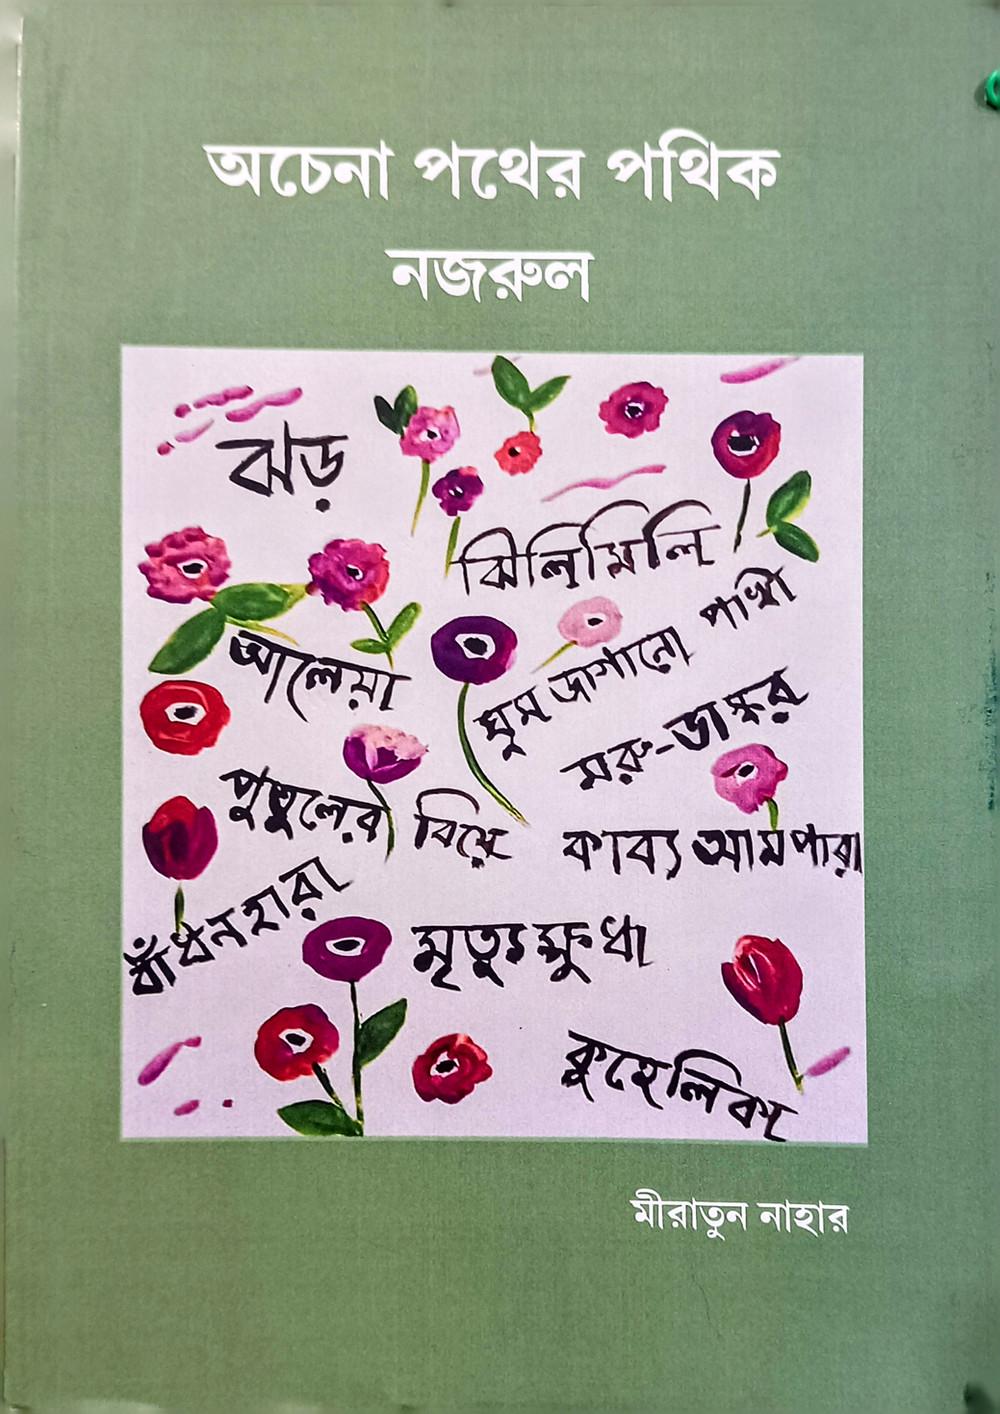 অচেনা পথের পথিক
নজরুল
ঝড়
ঝিলিমিলি
আলেয়া
ঘুম জাগানো পাখী
মরু-ভাস্কর
পুতুলের বিয়ে
কাব্য আমপারা
বাঁধনহারা
মৃত্যুক্ষুধা
কুহেলিকা
মীরাতুন নাহার